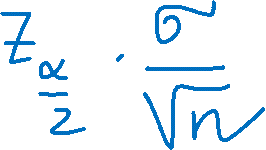 $z_{\frac{\alpha}{2}} \cdot \frac{\sigma}{\sqrt{n}}$